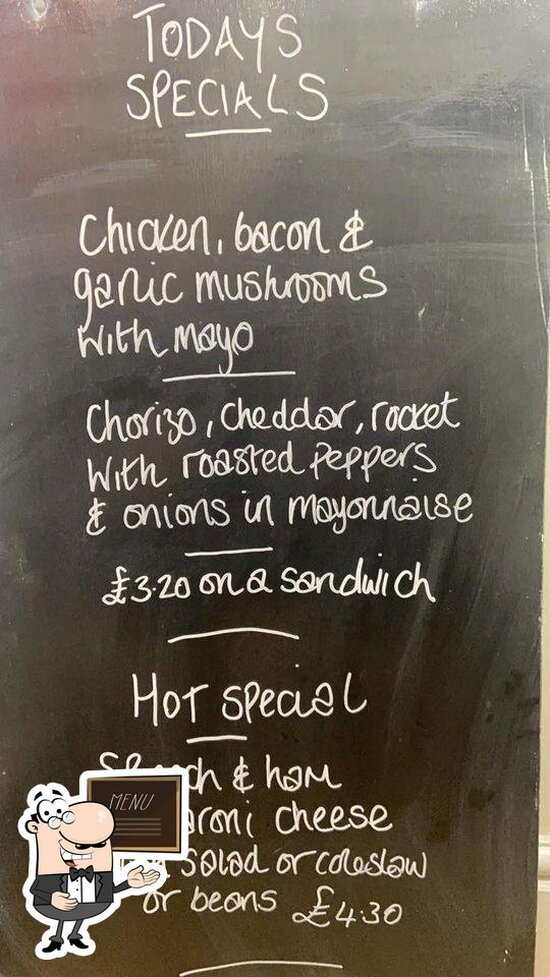 TODAYS
SPECIALS
Chicken, bacon &
garlic mushrooms
with mayo
Chorizo, cheddar, rocket
with roasted peppers
& onions in mayonnaise
£3.20 on a sandwich
Hot special
& ham
cheese
MENU
salad or coleslaw
or beans £4.30